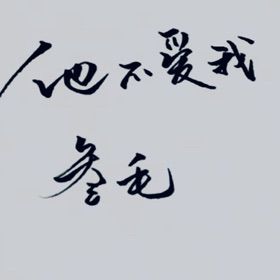 他不爱我
叁毛